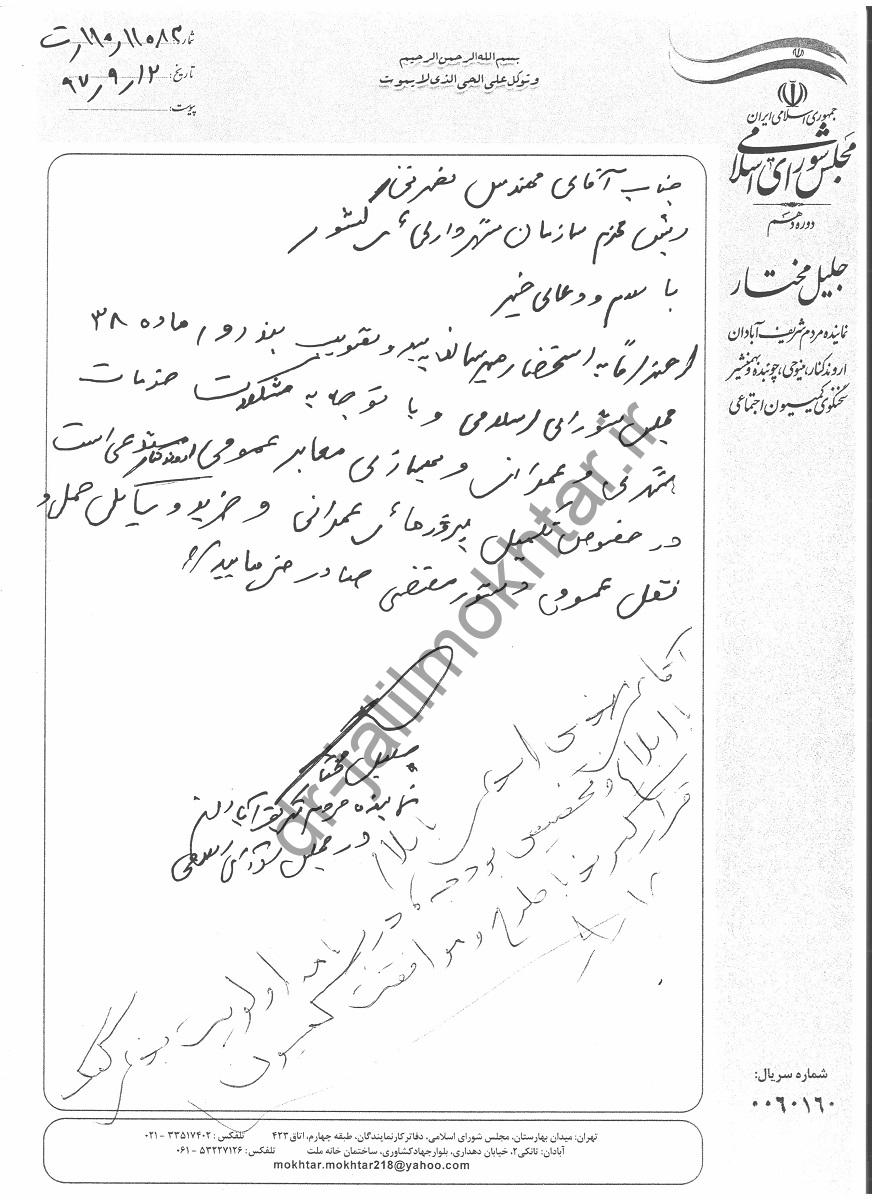 شماره: ۱۱۰/۱۱۰۸۲/ت
تاریخ: ۹۷/۹/۱۲
پیوست:
بسم الله الرحمن الرحیم
و توکل علی الحی الذی لا یموت
جمهوری اسلامی ایران
مجلس شورای اسلامی
دوره دهم
جلیل مختار
نماینده مردم شریف آبادان
اروندکنار، مینوحی، چوئبده و بهمنشیر
سخنگوی کمیسیون اجتماعی
جناب آقای مهندس
رئیس محترم سازمان شهرداری های کشور
با سلام و دعای خیر
احتراماً به استحضار میرساند و تصویب بند ماده ۳۸
مجلس شورای اسلامی و با توجه به مشکلات خدمات
شهری و عمرانی و بهسازی معابر عمومی اروندکنار مستدعی است
در خصوص تکمیل پروژه های عمرانی و خرید وسایل حمل و
نقل عمومی دستور مقتضی صادر فرمایید
جلیل مختار
نماینده مردم شریف آبادان
در مجلس شورای اسلامی
آقای مهندس
با سلام
و تخصیص بودجه در اولویت
قرار گیرد و موافقت کمیسیون
dr-jalilmokhtar.ir
شماره سریال:
۰۰۶۰۱۶۰
تهران: میدان بهارستان، مجلس شورای اسلامی، دفاتر کار نمایندگان، طبقه چهارم، اتاق ۴۲۳ تلفکس: ۳۳۵۱۷۴۰۲ - ۰۲۱
آبادان: تانکی۲، خیابان دهداری، بلوار جهاد کشاورزی، ساختمان خانه ملت تلفکس: ۵۳۲۲۷۱۲۶ - ۰۶۱
mokhtar.mokhtar218@yahoo.com